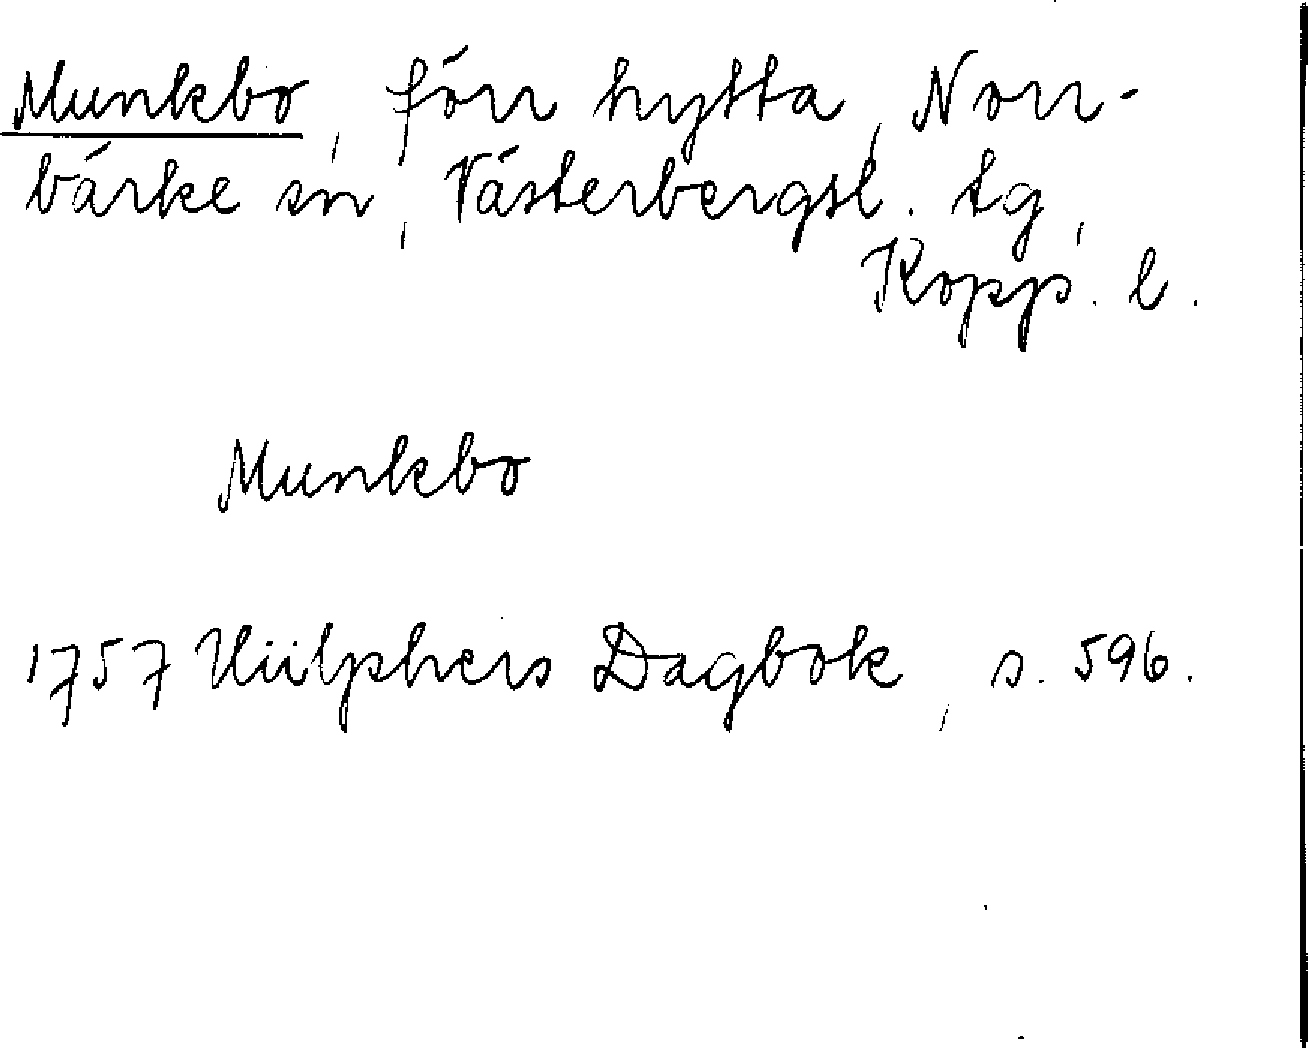 Munkbo, förr hytta, Norr-
bärke sn, Västerbergsl. tg,
Kopp. l.
Munkbo
1757 Hülphers Dagbok, s. 596.